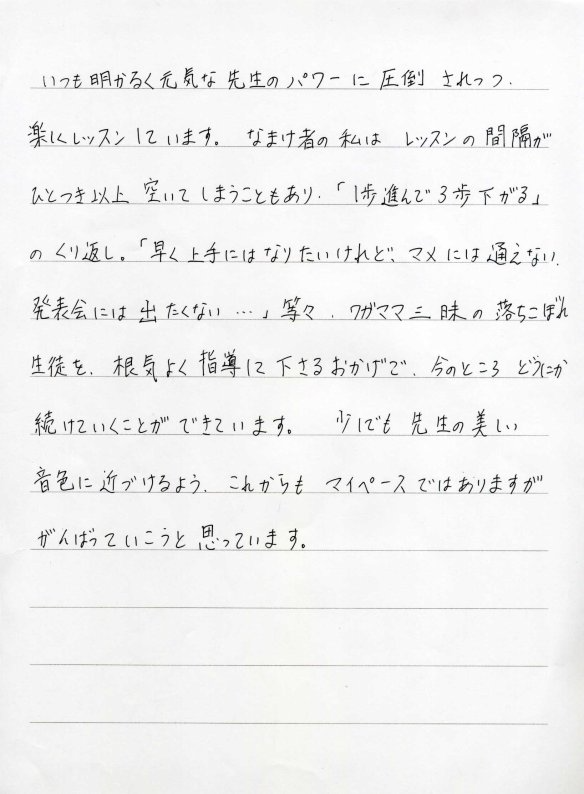 いつも明かるく元気な先生のパワーに圧倒されつつ、
楽しくレッスンしています。なまけ者の私はレッスンの間隔が
ひとつき以上空いてしまうこともあり、「1歩進んで3歩下がる」
のくり返し。「早く上手にはなりたいけれど、マメには通えない、
発表会には出たくない…」等々、ワガママ三昧の落ちこぼれ
生徒を、根気よく指導して下さるおかげで、今のところどうにか
続けていくことができています。少しでも先生の美しい
音色に近づけるよう、これからもマイペースではありますが
がんばっていこうと思っています。